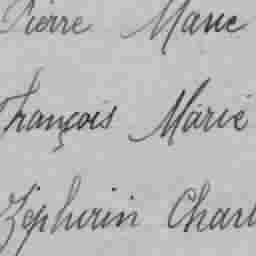 Pierre Marie
François Marie
Zéphirin Charl